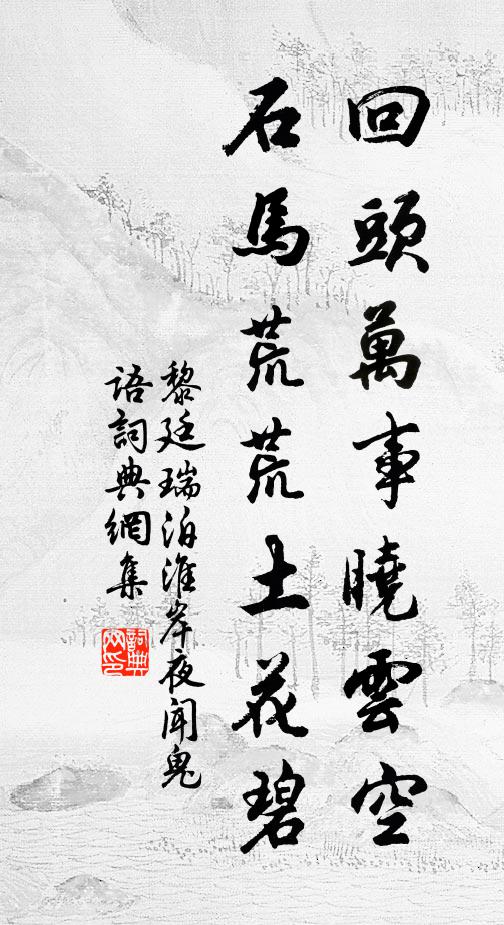 回頭萬事曉雲空
石馬荒荒土花碧
黎廷瑞泊淮岸夜聞鬼
語詞典網集
詞典
网印